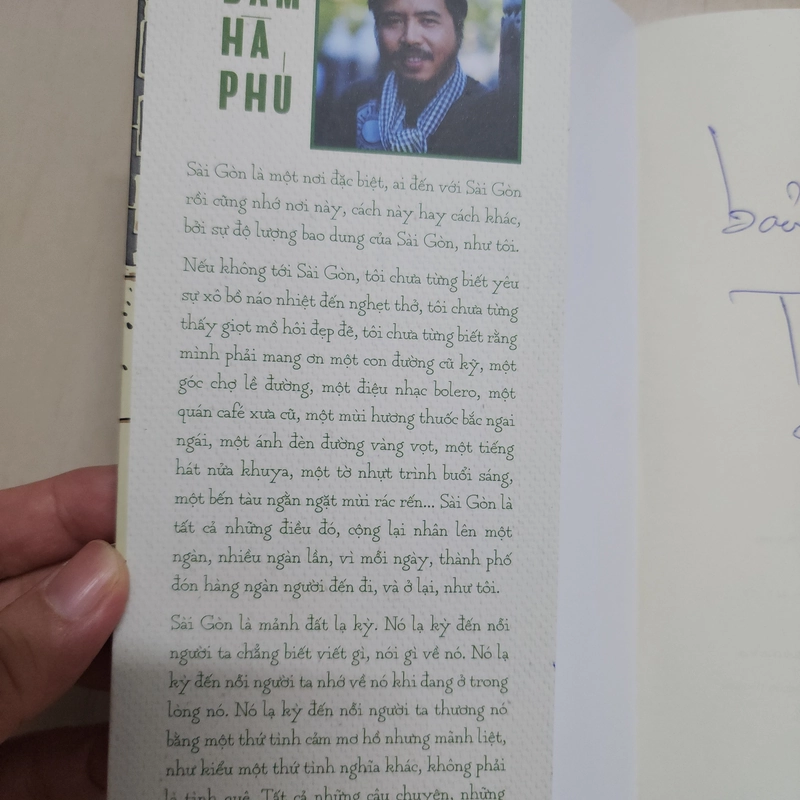 ĐÀM
HÀ
PHÚ
Sài Gòn là một nơi đặc biệt, ai đến với Sài Gòn
rồi cũng nhớ nơi này, cách này hay cách khác,
bởi sự độ lượng bao dung của Sài Gòn, như tôi.
Nếu không tới Sài Gòn, tôi chưa từng biết yêu
sự xô bồ náo nhiệt đến nghẹt thở, tôi chưa từng
thấy giọt mồ hôi đẹp đẽ, tôi chưa từng biết rằng
mình phải mang ơn một con đường cũ kỹ, một
góc chợ lề đường, một điệu nhạc bolero, một
quán café xưa cũ, một mùi hương thuốc bắc ngai
ngái, một ánh đèn đường vàng vọt, một tiếng
hát nửa khuya, một tờ nhựt trình buổi sáng,
một bến tàu ngằn ngặt mùi rác rến... Sài Gòn là
tất cả những điều đó, cộng lại nhân lên một
ngàn, nhiều ngàn lần, vì mỗi ngày, thành phố
đón hàng ngàn người đến đi, và ở lại, như tôi.
Sài Gòn là mảnh đất lạ kỳ. Nó lạ kỳ đến nỗi
người ta chẳng biết viết gì, nói gì về nó. Nó lạ
kỳ đến nỗi người ta nhớ về nó khi đang ở trong
lòng nó. Nó lạ kỳ đến nỗi người ta thương nó
bằng một thứ tình cảm mơ hồ nhưng mãnh liệt,
như kiểu một thứ tình nghĩa khác, không phải
là tình quê. Tất cả những câu chuyện, những